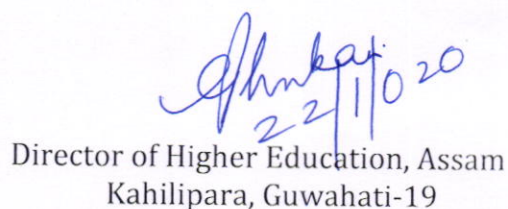 22/1/020
Director of Higher Education, Assam
Kahilipara, Guwahati-19